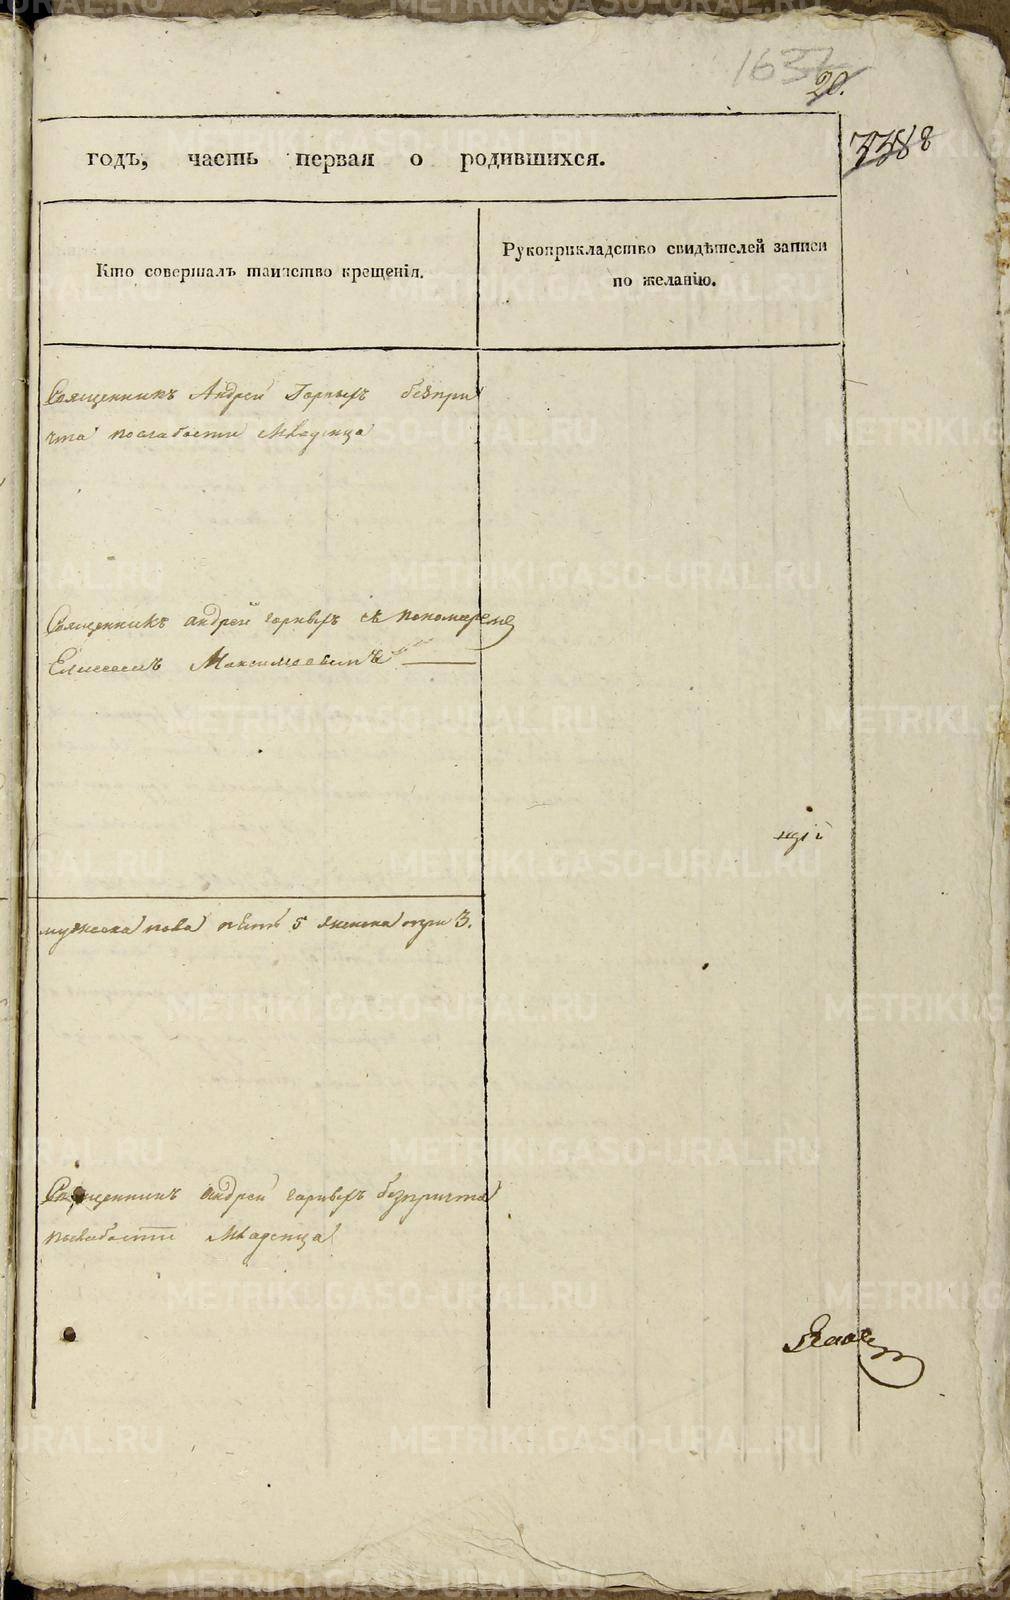 1637
20.
годъ, часть первая о родившихся.
Кто совершалъ таинство крещенія.
Рукоприкладство свидѣтелей записи
по желанію.
Священникъ Андрей безпри
чта послабости Младенца
Священникъ андрей съ пономаремъ
Елисеемъ Максимовымъ
мужеска пола пять 5 женска три 3.
Священникъ андрей безпричта
послабости Младенца
METRIKI.GASO-URAL.RU